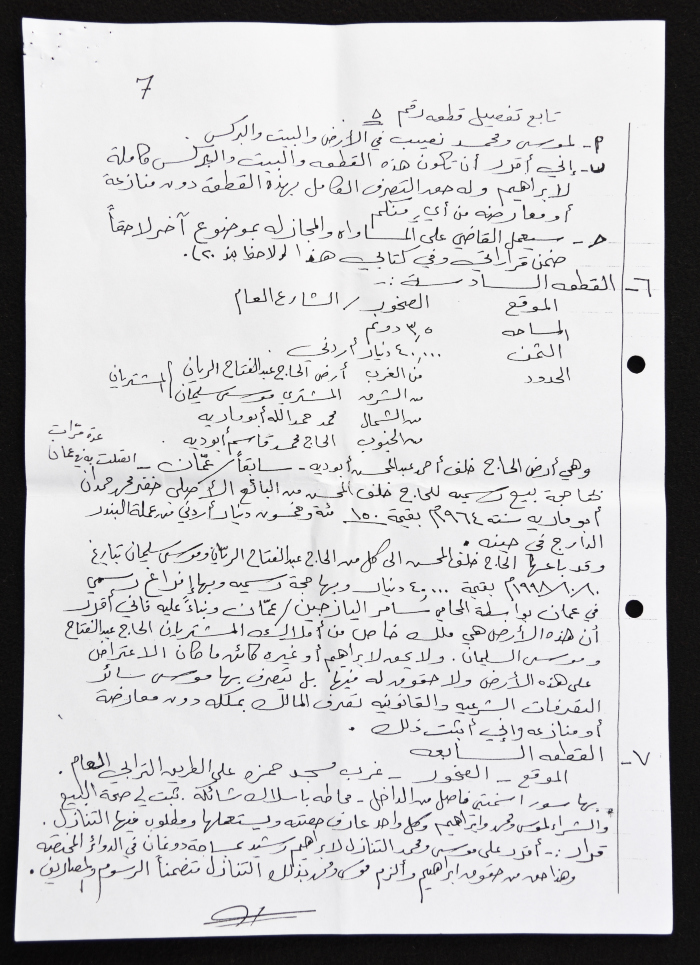 7
تابع تفصيل قطعه رقم ٥
٩- لموسى ومحمد نصيب في الأرض والبيت والبركس.
ب- إني أقرر أن تكون هذه القطعه والبيت والبركس كاملة
لابراهيم وله حق التصرف الكامل بهذه القطعة دون منازعة
أو معارضه من أي منكم
ح- سيعمل القاضي على المساواه والمجازله بموضوع آخر لاحقاً
ضمن قراراتي وفي كتابي هذا (لاحظ بند ٢٠).
٦- القطعه السادسة :-
الموقع الصخور / الشارع العام
المساحه ٣,٥ دونم
الثمن ٤٠,٠٠٠ دينار أردني.
الحدود من الغرب أرض الحاج عبدالفتاح الريان / المشتريان
من الشرق المشتري موسى سليمان
من الشمال محمد حمدالله أبوماريه
من الجنوب الحاج محمد قاسم أبوديه
عدة مرات
وهي أرض الحاج خلف أحمد عبدالمحسن أبوديه - سابقاً / عمّان - انتقلت به في عمان
بحاجة بيع رسميه للحاج خلف المحسن من البائع الأصلي خضر محمد حمدان
أبوماريه سنة ١٩٦٤م بقيمة ١٥٠ مئة وخمسون دينار أردني من عملة البندر
الدارج في حينه.
وقد باعها الحاج خلف المحسن الى كل من الحاج عبدالفتاح الريان وموسى سليمان بتاريخ
١٩٩٨/١٠/١٠م بقيمة ٤٠,٠٠٠ دينار وبها حجة رسميه وبها إفراغ رسمي
في عمان بواسطة المحامي سامر اليازجين / عمّان وبناءً عليه فاني أقرر
أن هذه الأرض هي ملك خاص من أملاك المشتريان الحاج عبدالفتاح
وموسى السليمان. ولا يحق لابراهيم أو غيره كائن ما كان الاعتراض
على هذه الأرض ولا حقوق له فيها بل يتصرف بها موسى سائر
التصرفات الشرعيه والقانونيه تصرف المالك بملكه دون معارضة
أو منازعه وإني أثبت ذلك.
٧- القطعه السابعه
الموقع - الصخور - غرب مسجد حمزه على الطريق الترابي العام.
بها سور اسمنتي فاصل من الداخل - محاطه باسلاك شائكة. ثبت لي صحة البيع
والشراء لموسى ومحمد وابراهيم وكل واحد عارف حصته ويستعملها ومطلوب فيها التنازل.
قرار :- أقرر على موسى ومحمد التنازل لابراهيم رشيد بمساحة دونمان في الدوائر المختصه
وهذا حق من حقوق ابراهيم وألزم موسى ومحمد بذلك التنازل متضمناً الرسوم والمصاريف.